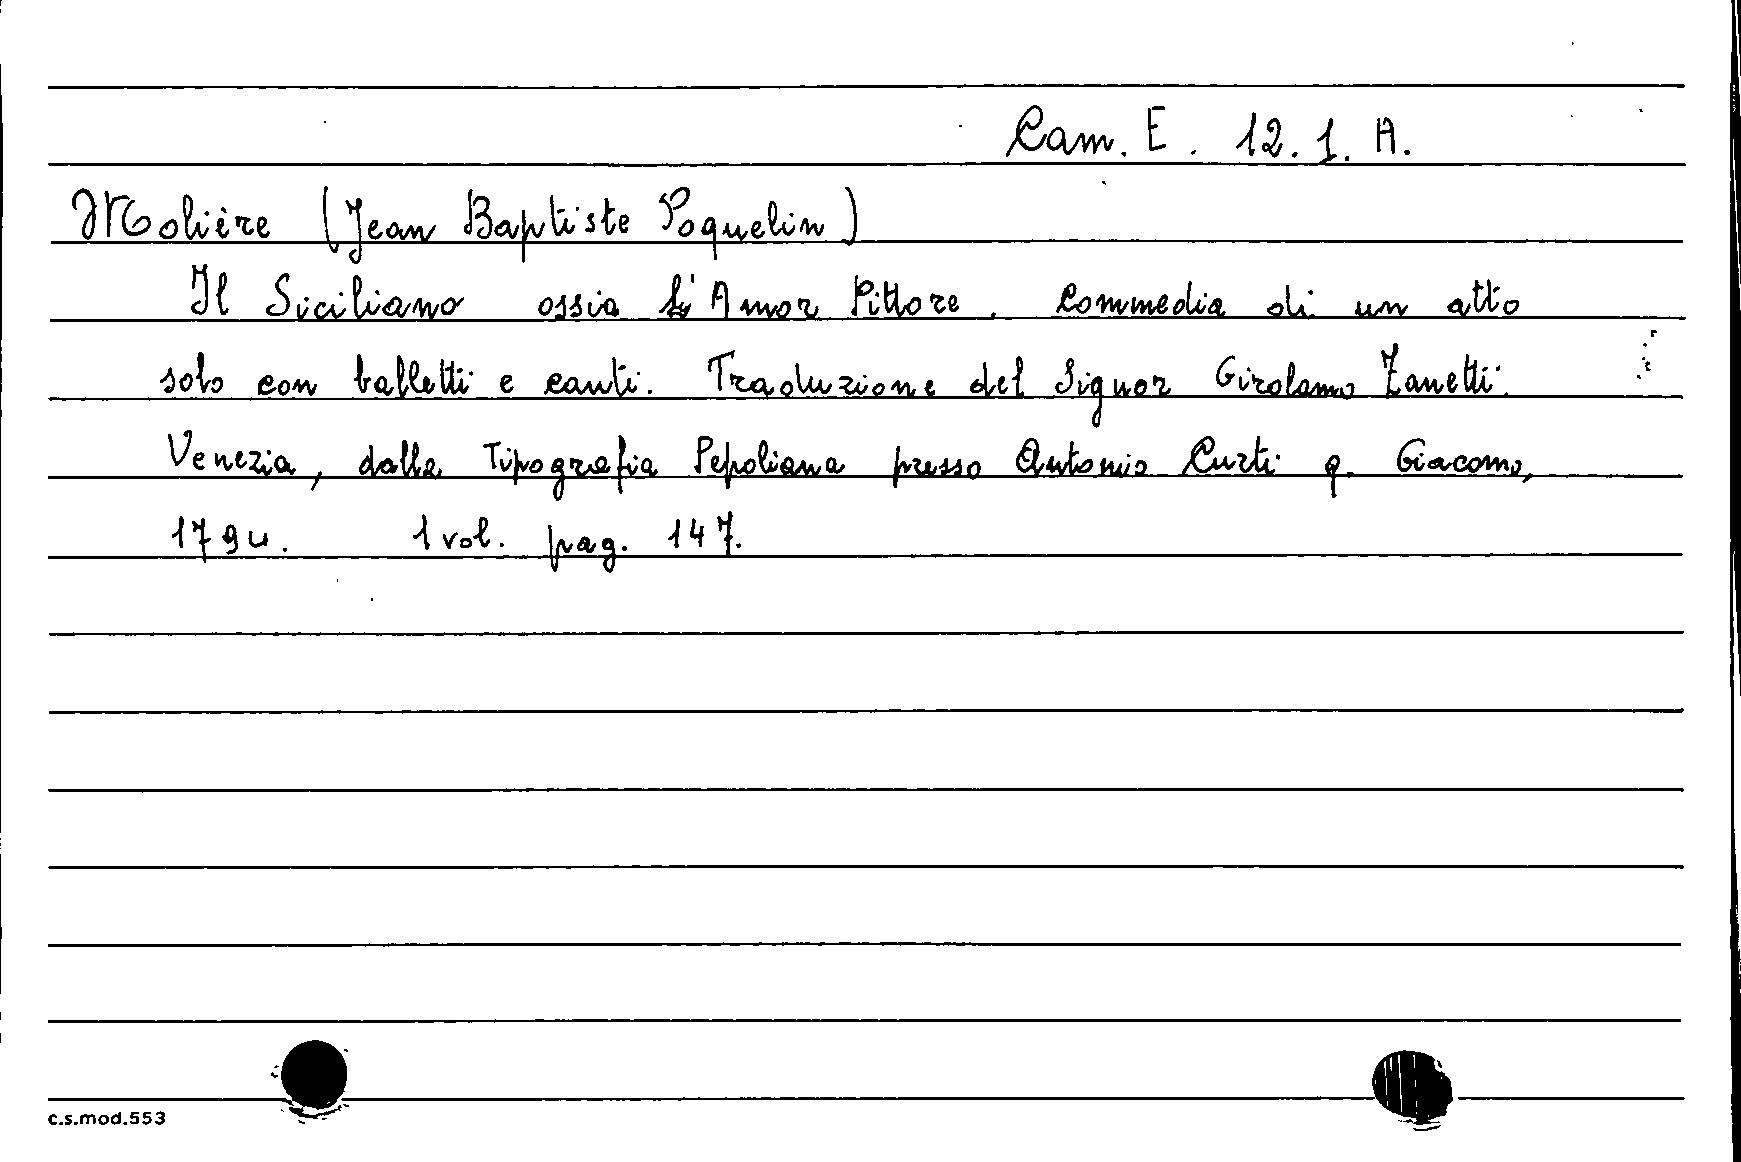 Cam. E. 12. 1. A.
Molière (Jean Baptiste Poquelin)
Il Siciliano ossia L'Amor Pittore. Commedia di un atto
solo con balletti e canti. Traduzione del Signor Girolamo Zanetti.
Venezia, dalla Tipografia Pepoliana presso Antonio Curti q. Giacomo,
1794. 1 vol. pag. 147.
c.s.mod.553